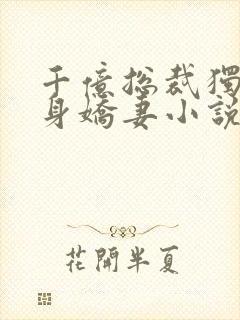 千億總裁獨
身嬌妻小說
花開半夏